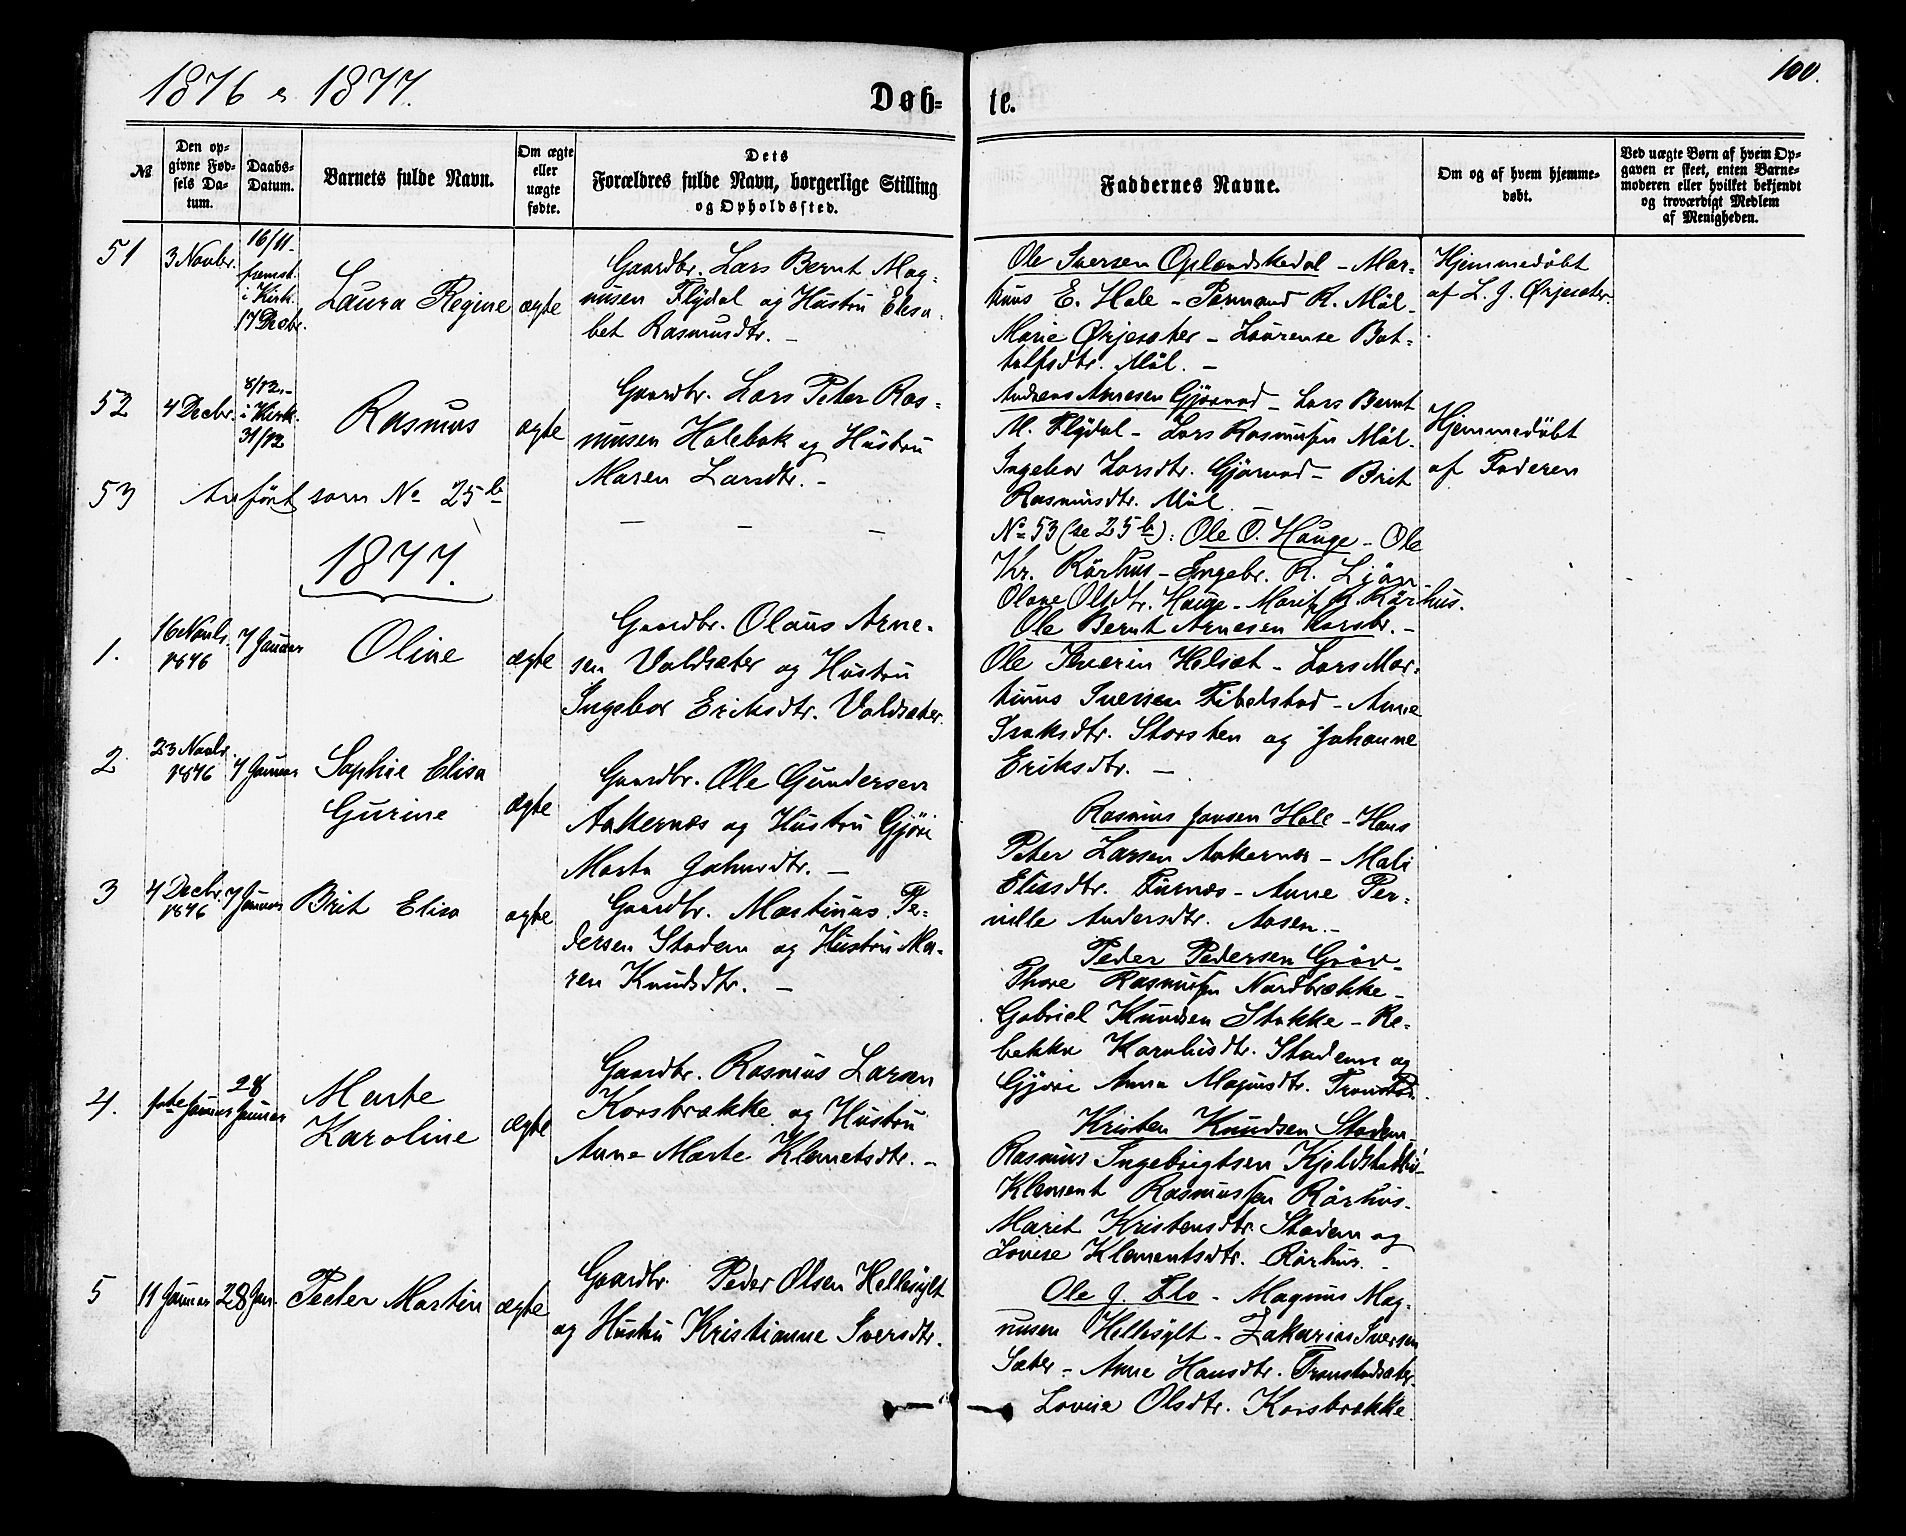 1876 & 1877.
Døb=
te.
100.
№
Den op-
givne Fød-
sels Da-
tum.
Daabs-
Datum.
Barnets fulde Navn.
Om ægte
eller
uægte
fødte.
Dets
Forældres fulde Navn, borgerlige Stilling
og Opholdssted.
Faddernes Navne.
Om og af hvem hjemme-
døbt.
Ved uægte Børn af hvem Op-
gaven er skeet, enten Barne-
moderen eller hvilket bekjendt
og troværdigt Medlem
af Menigheden.
51
3 Novbr.
16/11 -
fremst.
i Kirk.
17 Decbr.
Laura Regine
ægte
Gaardbr. Lars Bernt Mag-
nusen Flydal og Hustru Elisa-
bet Rasmusdtr. –
Ole Iversen Oplandskedal - Mar-
tinus E. Hole - R. Møl -
Marie Ørjesæter - Laurense Bot-
tolfsdtr. Møl. -
Hjemmedøbt
af L. J. Ørjesæter
52
4 Decbr.
8/12. -
i Kirk.
31/12
Rasmus
ægte
Gaardbr. Lars Peter Ras-
musen Holebak og Hustru
Maren Larsdtr. -
Andreas Arnesen Gjørvad - Lars Bernt
M. Flydal - Lars Rasmussen Møl -
Ingebor Larsdtr. Gjørvad - Brit
Rasmusdtr. Møl. -
Hjemmedøbt
af Faderen
53
Anført som No 25 b
- - -
No 53 (se 25 b): Ole O. Hauge - Ole
Kr. Rørhus - Ingebr. R. Ljøen -
Olave Olsdtr. Hauge - Marit K. Rørhus.
1877.
1.
16 Novbr.
1876
7 Januar
Oline
ægte
Gaardbr. Olaus Arne-
sen Valdsæter og Hustru
Ingebor Eriksdtr. Valdsæter.
Ole Bernt Arnesen Korsbr. -
Ole Severin Helset - Lars Mar-
tinus Iversen Fibelstad - Anne
Isaksdtr. Storsten og Johanne
Eriksdtr. -
2
23 Novbr.
1876
7 Januar
Sophie Elisa
Gurine
ægte
Gaardbr. Ole Gundersen
Aakernæs og Hustru Gjøri
Marta Johnsdtr. -
Rasmus Jonsen Hole - Hans
Peter Larsen Aakernæs - Mali
Eliasdtr. Furnæs - Anne Per-
nille Andersdtr. Aasen. -
3
4 Decbr.
1876
7 Januar
Brit Elisa
ægte
Gaardbr. Martinus Pe-
dersen Stadem og Hustru Ma-
ren Knudsdtr. -
Peder Pedersen Grøv -
Thore Rasmussen Nordbrække -
Gabriel Knudsen Stakke - Re-
bekka Karolusdtr. Stadem og
Gjøri Anna Magnusdtr. Tronstad.
4.
Januar
28
Januar
Marte
Karoline
ægte
Gaardbr. Rasmus Larsen
Korsbrække og Hustru
Anne Marte Klemetsdtr. -
Kristen Knudsen Stadem -
Rasmus Ingebrigtsen Kjeldstadli -
Klement Rasmussen Rørhus -
Marit Kristensdtr. Stadem og
Lovise Klementsdtr. Rørhus. -
5
11 Januar
28 Jan.
Peder Martin
ægte
Gaardbr. Peder Olsen Hellesylt
og Hustru Kristianne Iversdtr.
Ole J. Flo - Magnus Mag-
nusen Hellesylt - Zakarias Iversen
Sæter - Anne Hansdtr. Tronstadsæter
Lovise Olsdtr. Korsbrække.